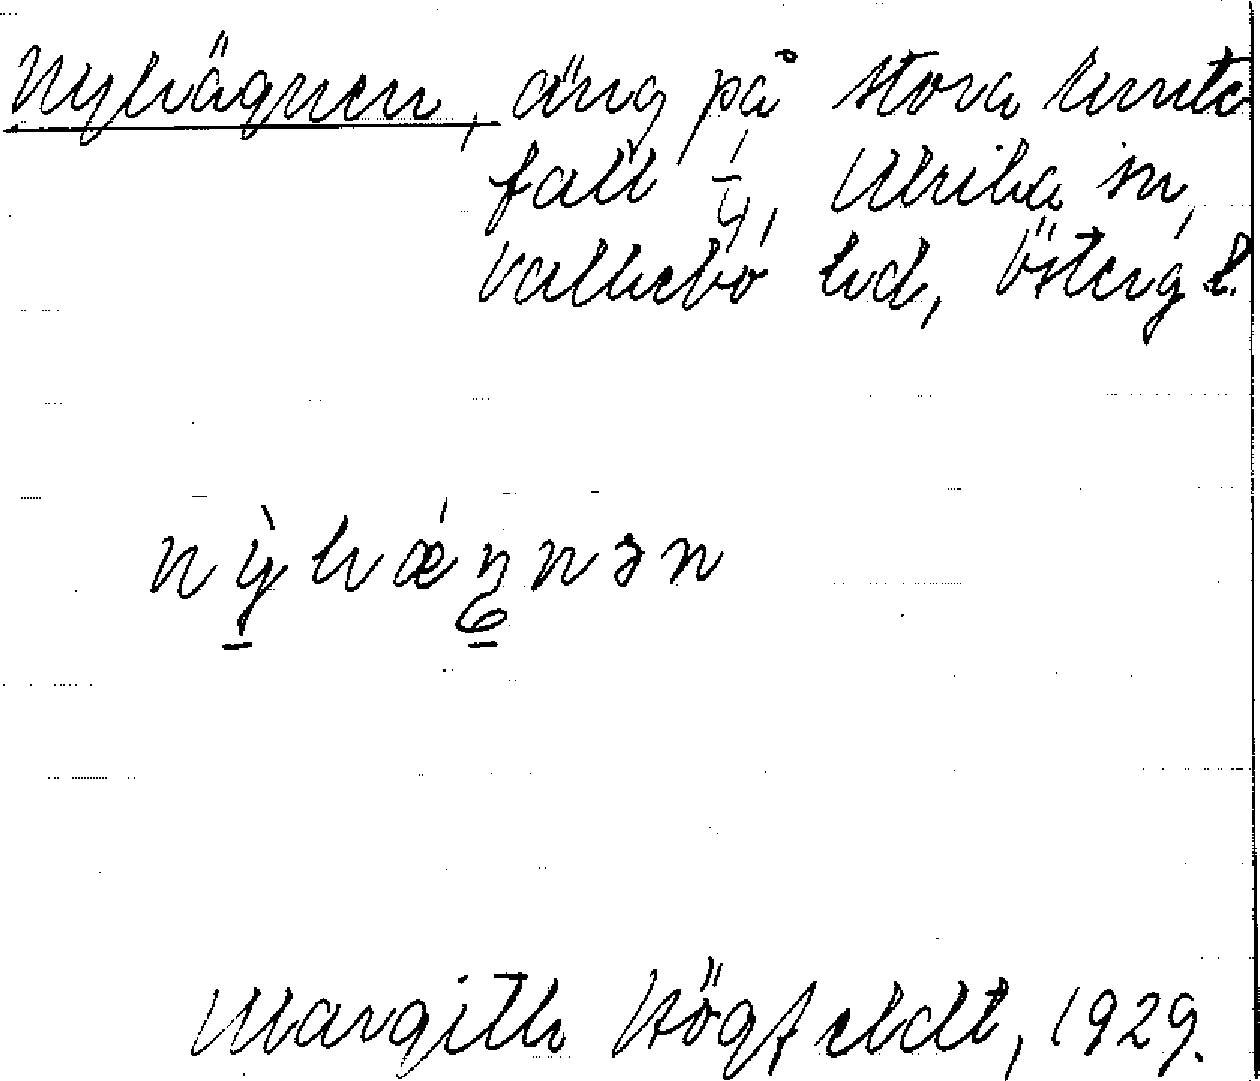 Nyhägnen, äng på Stora
fall 1/4, Ulrika sn,
Valkebo hd, Östergl.
nỳhǽŋnən
Margith Högfeldt, 1929.